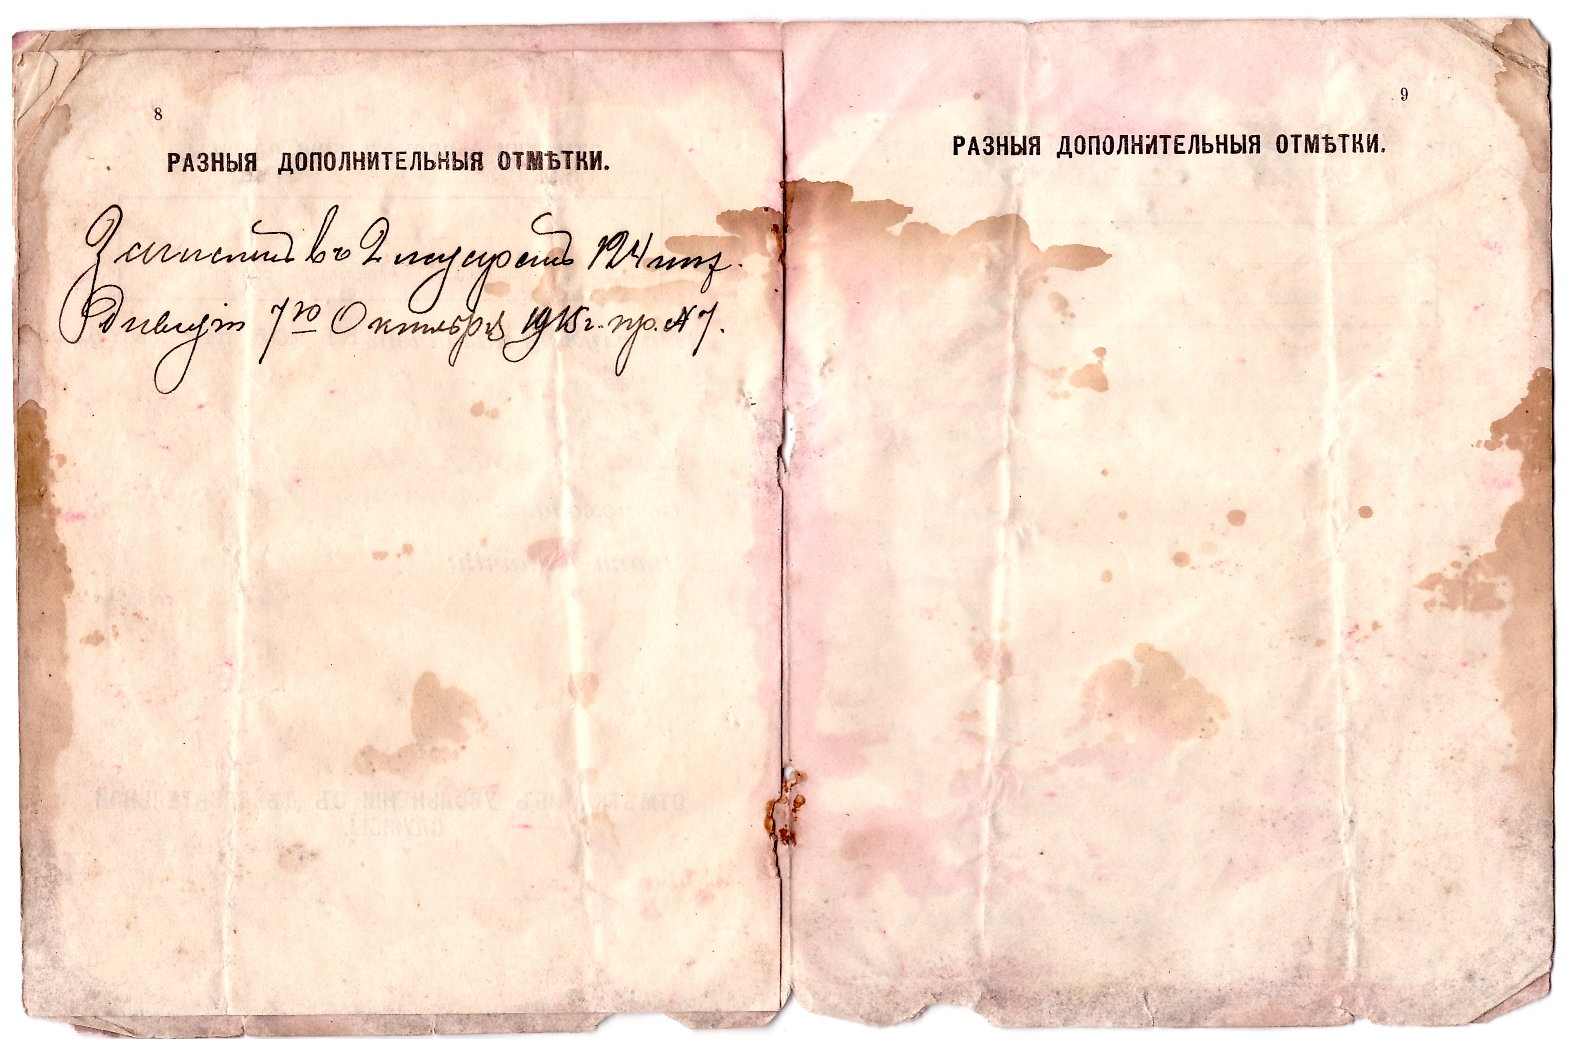 8
РАЗНЫЯ ДОПОЛНИТЕЛЬНЫЯ ОТМѢТКИ.
Зачисленъ въ 2 124
7го Октября 1915г. пр. № 7.
9
РАЗНЫЯ ДОПОЛНИТЕЛЬНЫЯ ОТМѢТКИ.